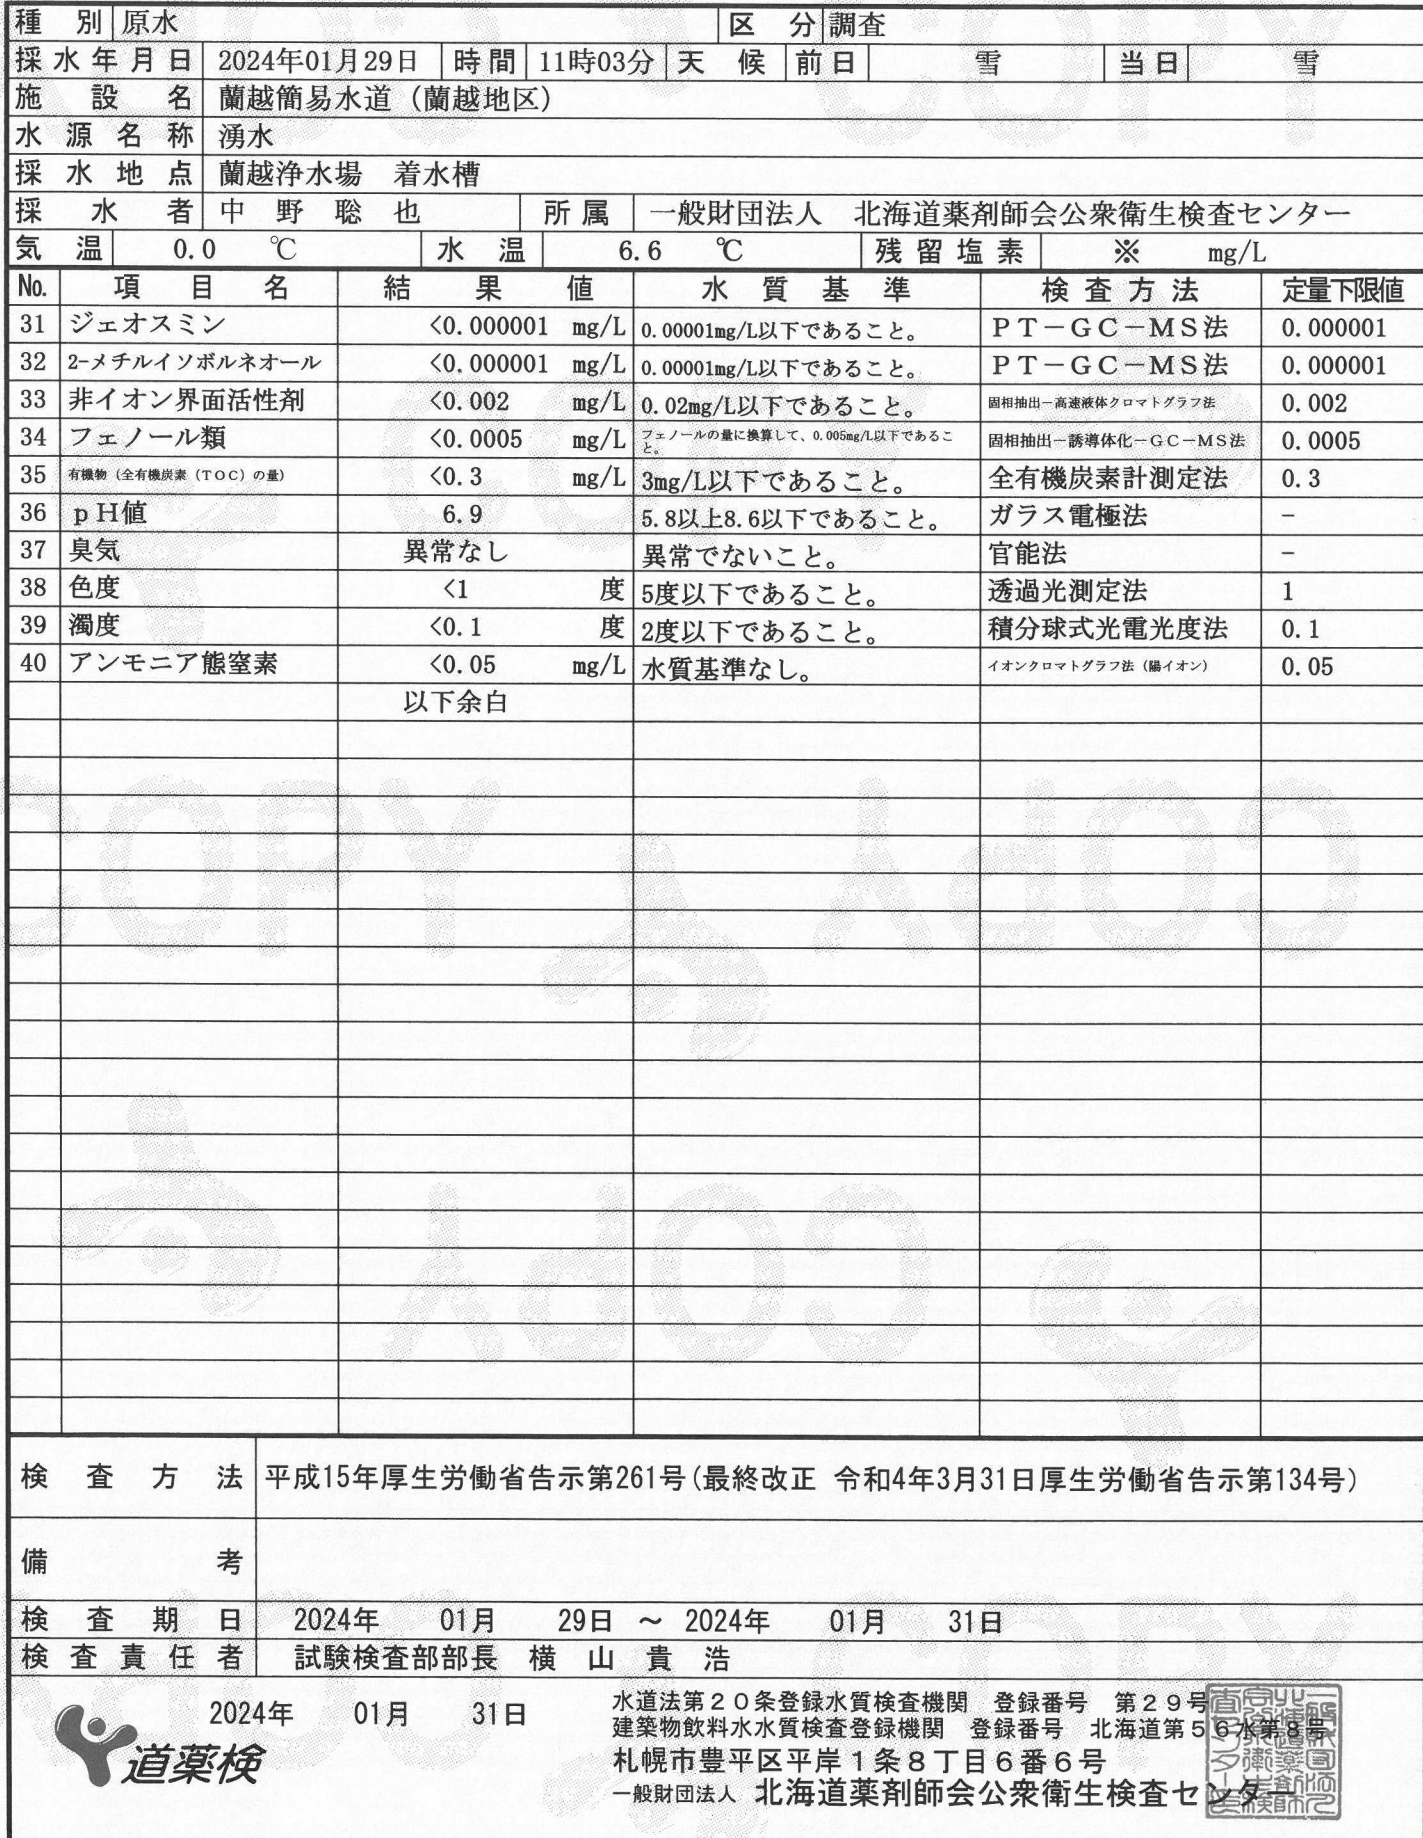 種 別 原水 区 分 調査
採水年月日 2024年01月29日 時間 11時03分 天 候 前日 雪 当日 雪
施 設 名 蘭越簡易水道（蘭越地区）
水 源 名 称 湧水
採 水 地 点 蘭越浄水場 着水槽
採 水 者 中 野 聡 也 所属 一般財団法人 北海道薬剤師会公衆衛生検査センター
気 温 0.0 ℃ 水 温 6.6 ℃ 残留塩素 ※ mg/L
No. 項 目 名 結 果 値 水 質 基 準 検 査 方 法 定量下限値
31 ジェオスミン <0.000001 mg/L 0.00001mg/L以下であること。 ＰＴ－ＧＣ－ＭＳ法 0.000001
32 2-メチルイソボルネオール <0.000001 mg/L 0.00001mg/L以下であること。 ＰＴ－ＧＣ－ＭＳ法 0.000001
33 非イオン界面活性剤 <0.002 mg/L 0.02mg/L以下であること。 固相抽出－高速液体クロマトグラフ法 0.002
34 フェノール類 <0.0005 mg/L フェノールの量に換算して、0.005mg/L以下であること。 固相抽出－誘導体化－ＧＣ－ＭＳ法 0.0005
35 有機物（全有機炭素（ＴＯＣ）の量） <0.3 mg/L 3mg/L以下であること。 全有機炭素計測定法 0.3
36 ｐＨ値 6.9 5.8以上8.6以下であること。 ガラス電極法 －
37 臭気 異常なし 異常でないこと。 官能法 －
38 色度 <1 度 5度以下であること。 透過光測定法 1
39 濁度 <0.1 度 2度以下であること。 積分球式光電光度法 0.1
40 アンモニア態窒素 <0.05 mg/L 水質基準なし。 イオンクロマトグラフ法（陽イオン） 0.05
以下余白
COPY COPY
COPY
検 査 方 法 平成15年厚生労働省告示第261号(最終改正 令和4年3月31日厚生労働省告示第134号)
備 考
検 査 期 日 2024年 01月 29日 ～ 2024年 01月 31日
検 査 責 任 者 試験検査部部長 横 山 貴 浩
2024年 01月 31日
道薬検
水道法第２０条登録水質検査機関 登録番号 第２９号
建築物飲料水水質検査登録機関 登録番号 北海道第５６水第８号
札幌市豊平区平岸１条８丁目６番６号
一般財団法人 北海道薬剤師会公衆衛生検査センター